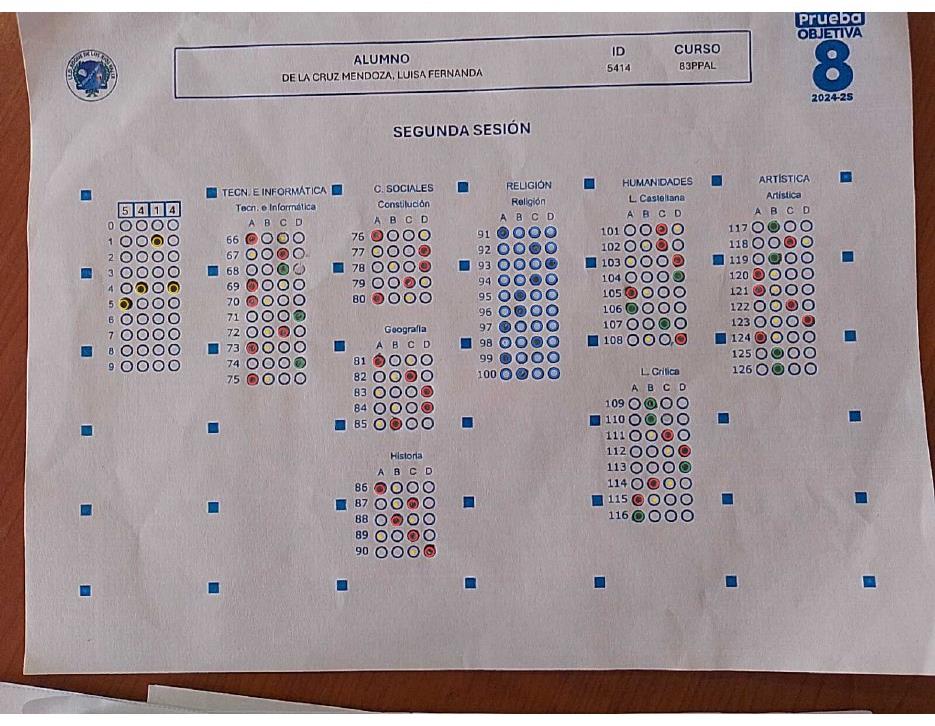 Prueba
OBJETIVA
8
2024-25
ALUMNO
DE LA CRUZ MENDOZA, LUISA FERNANDA
ID
5414
CURSO
83PPAL
SEGUNDA SESIÓN
5 4 1 4
0
1
2
3
4
5
6
7
8
9
TECN. E INFORMÁTICA
Tecn. e Informática
A B C D
66
67
68
69
70
71
72
73
74
75
C. SOCIALES
Constitución
A B C D
76
77
78
79
80
Geografia
A B C D
81
82
83
84
85
Historia
A B C D
86
87
88
89
90
RELIGIÓN
Religión
A B C D
91
92
93
94
95
96
97
98
99
100
HUMANIDADES
L. Castellana
A B C D
101
102
103
104
105
106
107
108
L. Crítica
A B C D
109
110
111
112
113
114
115
116
ARTÍSTICA
Artística
A B C D
117
118
119
120
121
122
123
124
125
126